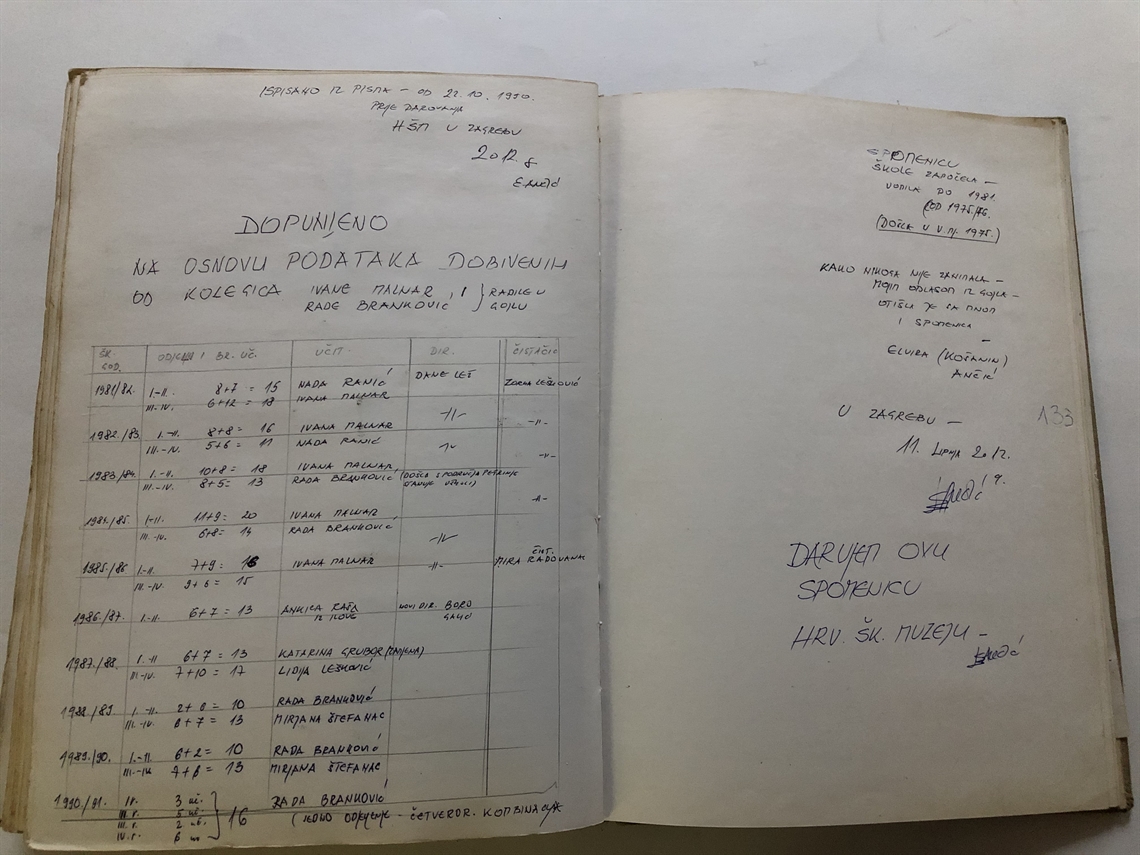 ISPISANO IZ PISMA – OD 22.10.1990.
PRIJE DAROVANJA
HŠM U ZAGREBU
2012. g
E. Ančić
DOPUNJENO
NA OSNOVU PODATAKA DOBIVENIH
OD KOLEGICA IVANE MALNAR, I } RADILE U
RADE BRANKOVIĆ } GOJLU
ŠK. GOD. ODJELJ. I BR. UČ. UČIT. DIR. ČISTAČIC
1981/82. I.–II. 8+7 = 15 NADA RANIĆ DANE LEŠ ZORKA LEŠKOVIĆ
III.–IV. 6+12 = 18 IVANA MALNAR
1982./83. I.–II. 8+8 = 16 IVANA MALNAR –II– –II–
III.–IV. 5+6 = 11 NADA RANIĆ –II–
1983/84. I.–II. 10+8 = 18 IVANA MALNAR, –II–
III.–IV. 8+5 = 13 RADA BRANKOVIĆ (DOŠLA S PODRUČJA PETRINJE
1984./85. I–II. 11+9 = 20 IVANA MALNAR –II–
III.–IV. 6+8 = 14 RADA BRANKOVIĆ –II–
1985./86 I.–II. 7+9 = 16 IVANA MALNAR –II– ČIST. MIRA RADOVANAC
III.–IV. 9+6 = 15
1986./87. I.–II. 6+7 = 13 ANKICA RAŠA NOVI DIR. BORO
IZ ILOVE
1987./88. I.–II 6+7 = 13 KATARINA GRUBOR (ZAMJENA)
III.–IV. 7+10 = 17 LIDIJA LEŠKOVIĆ
1988./89. I.–II. 2+8 = 10 RADA BRANKOVIĆ
III.–IV. 6+7 = 13 MIRJANA ŠTEFANAC
1989./90. I.–II. 6+2 = 10 RADA BRANKOVIĆ
III.–IV. 7+6 = 13 MIRJANA ŠTEFANAC
1990./91. I r. 3 uč. } 16 RADA BRANKOVIĆ
II r. 5 uč. (JEDNO ODJELJENJE – ČETVEROR. KOMBINACIJA
III. r. 2 uč.
IV. r. 6
SPOMENICU
ŠKOLE ZAPOČELA –
VODILA DO 1981.
(OD 1975/76.
(DOŠLA U V. mj. 1975.)
KAKO NIKOGA NIJE ZANIMALA –
MOJIM ODLASKOM IZ GOJLA –
OTIŠLA JE SA MNOM
I SPOMENICA
–
ELVIRA (KOŠANIN)
ANČIĆ
U ZAGREBU –
133
11. LIPNJA 2012.
g.
Ančić
DARUJEM OVU
SPOMENICU
HRV. ŠK. MUZEJU –
EAnčić